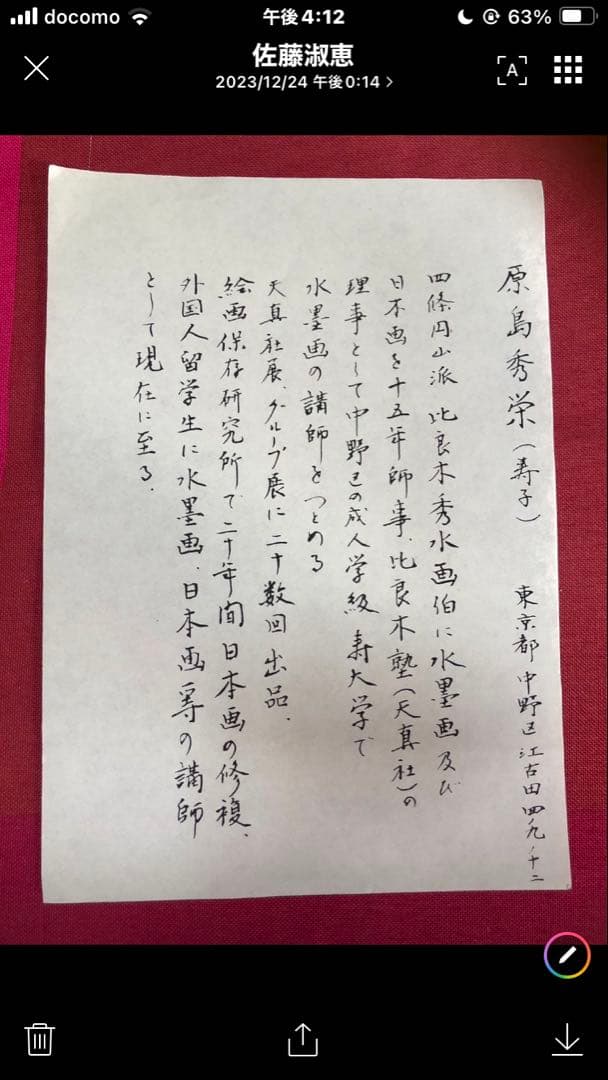 docomo
午後4:12
63%
佐藤淑恵
2023/12/24 午後0:14
A
原島秀栄(寿子)
東京都中野区江古田四ノ九ノ十二
四條円山派 比良木秀水画伯に水墨画及び
日本画を十五年師事、比良木塾(天真社)の
理事として中野区の成人学級 寿大学で
水墨画の講師をつとめる
天真社展、グループ展に二十数回出品、
絵画保存研究所で二十年間日本画の修複、
外国人留学生に水墨画、日本画等の講師
として現在に至る、